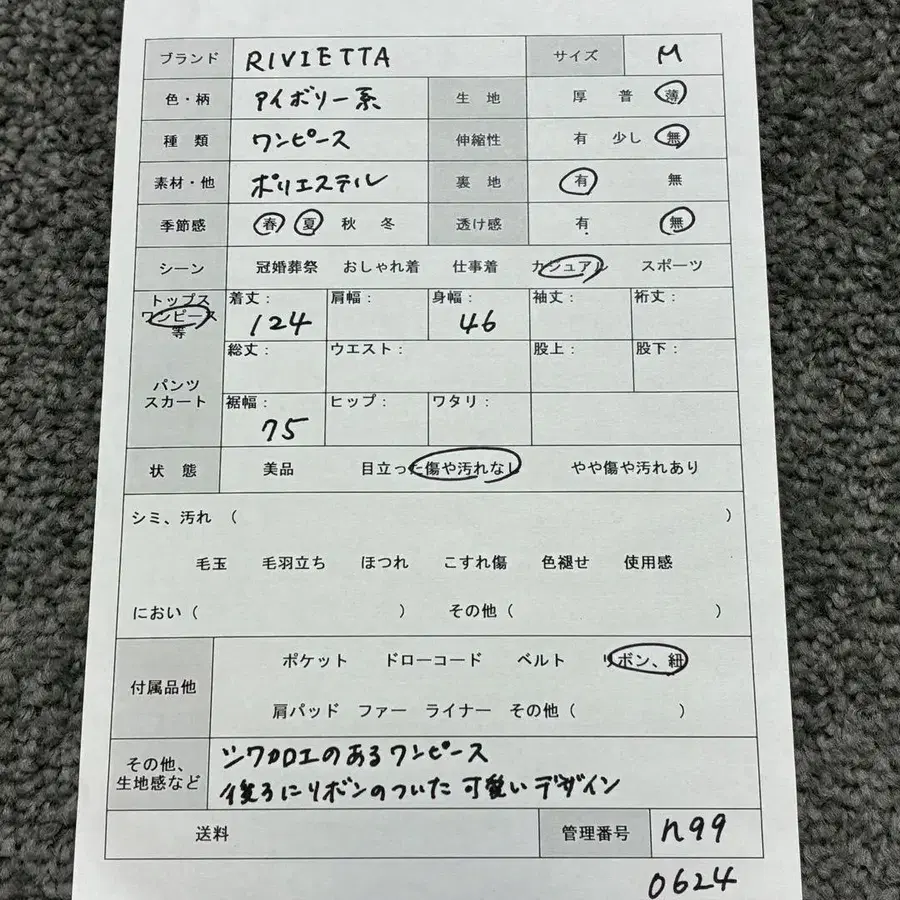 ブランド RIVIETTA サイズ M
色・柄 アイボリー系 生地 厚 普 薄
種類 ワンピース 伸縮性 有 少し 無
素材・他 ポリエステル 裏地 有 無
季節感 春 夏 秋 冬 透け感 有 無
シーン 冠婚葬祭 おしゃれ着 仕事着 カジュアル スポーツ
トップス
ワンピース
等
着丈: 肩幅: 身幅: 袖丈: 裄丈:
124 46
パンツ
スカート
総丈: ウエスト: 股上: 股下:
裾幅: ヒップ: ワタリ:
75
状態 美品 目立った傷や汚れなし やや傷や汚れあり
シミ、汚れ ( )
毛玉 毛羽立ち ほつれ こすれ傷 色褪せ 使用感
におい ( ) その他 ( )
付属品他
ポケット ドローコード ベルト リボン、紐
肩パッド ファー ライナー その他 ( )
その他、
生地感など
シワ加工のあるワンピース
後ろにリボンのついた可愛いデザイン
送料 管理番号 n99
0624